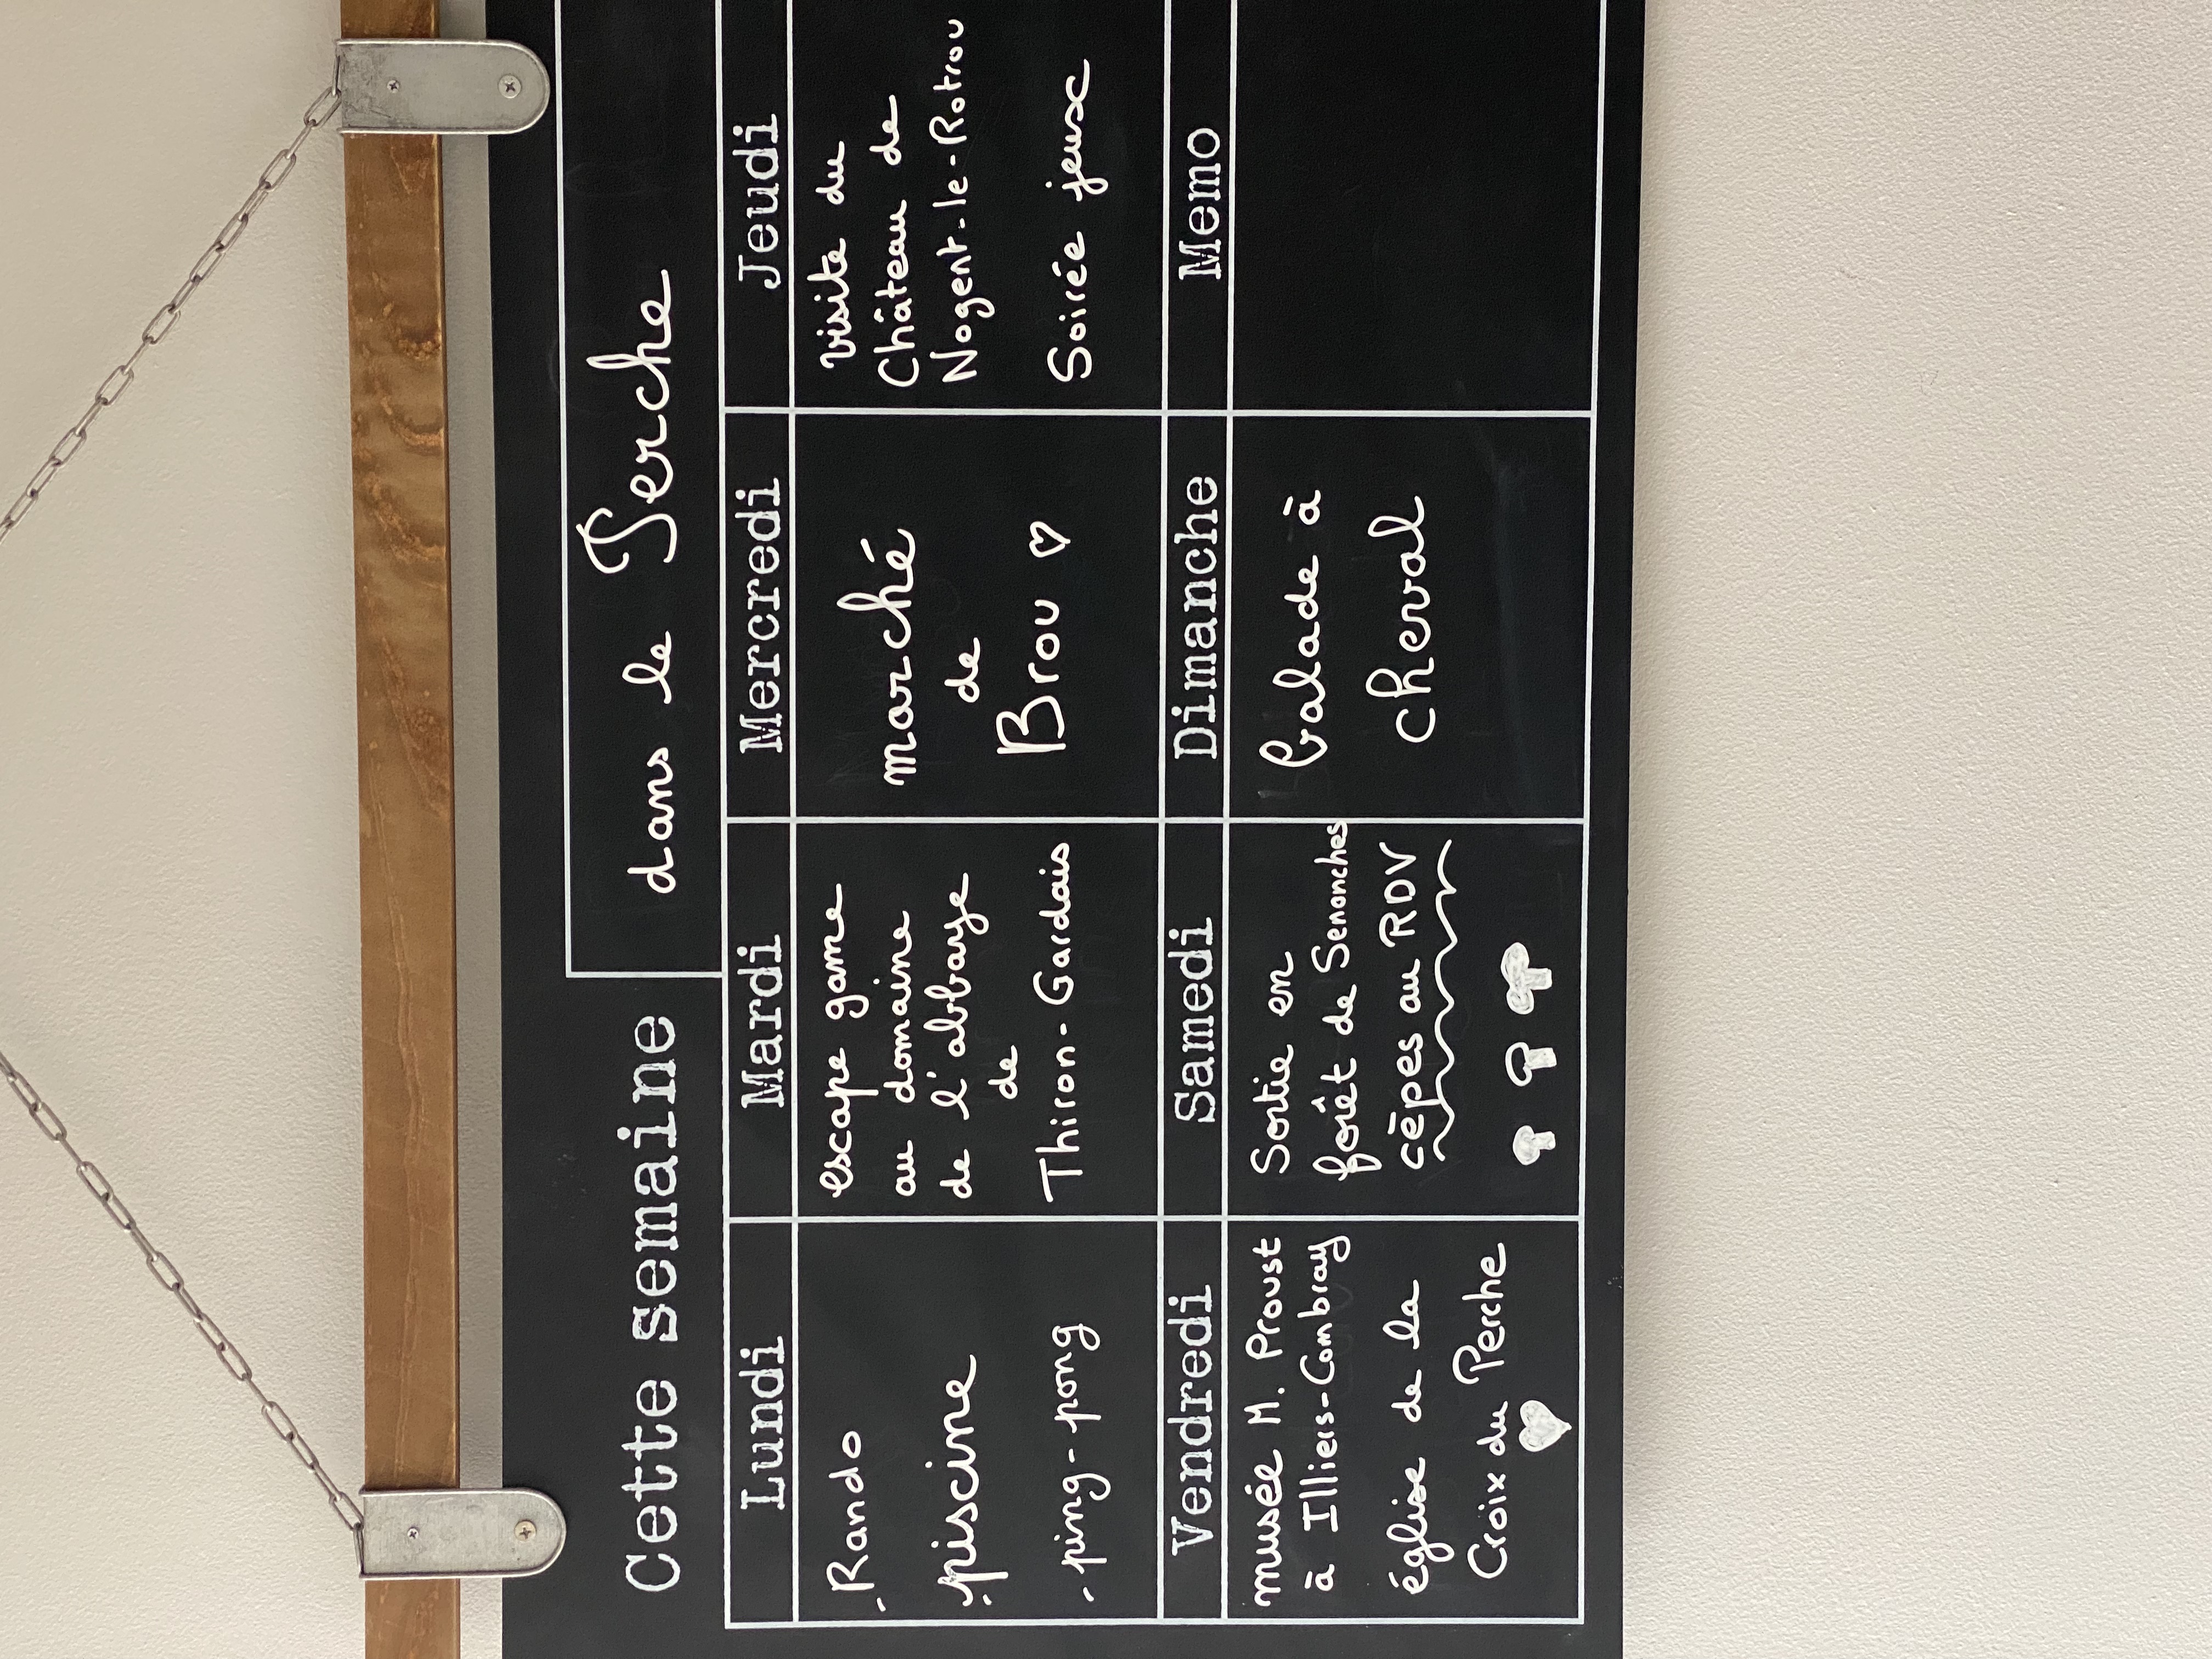 Cette semaine dans le Perche
Lundi
- Rando
- piscine
- ping-pong
Mardi
escape game
au domaine
de l'abbaye
de
Thiron-Gardais
Mercredi
marché
de
Brou ♡
Jeudi
visite du
Château de
Nogent-le-Rotrou
Soirée jeux
Vendredi
musée M. Proust
à Illiers-Combray
église de la
Croix du Perche
Samedi
Sortie en
forêt de Senonches
cèpes au RDV
Dimanche
balade à
cheval
Memo